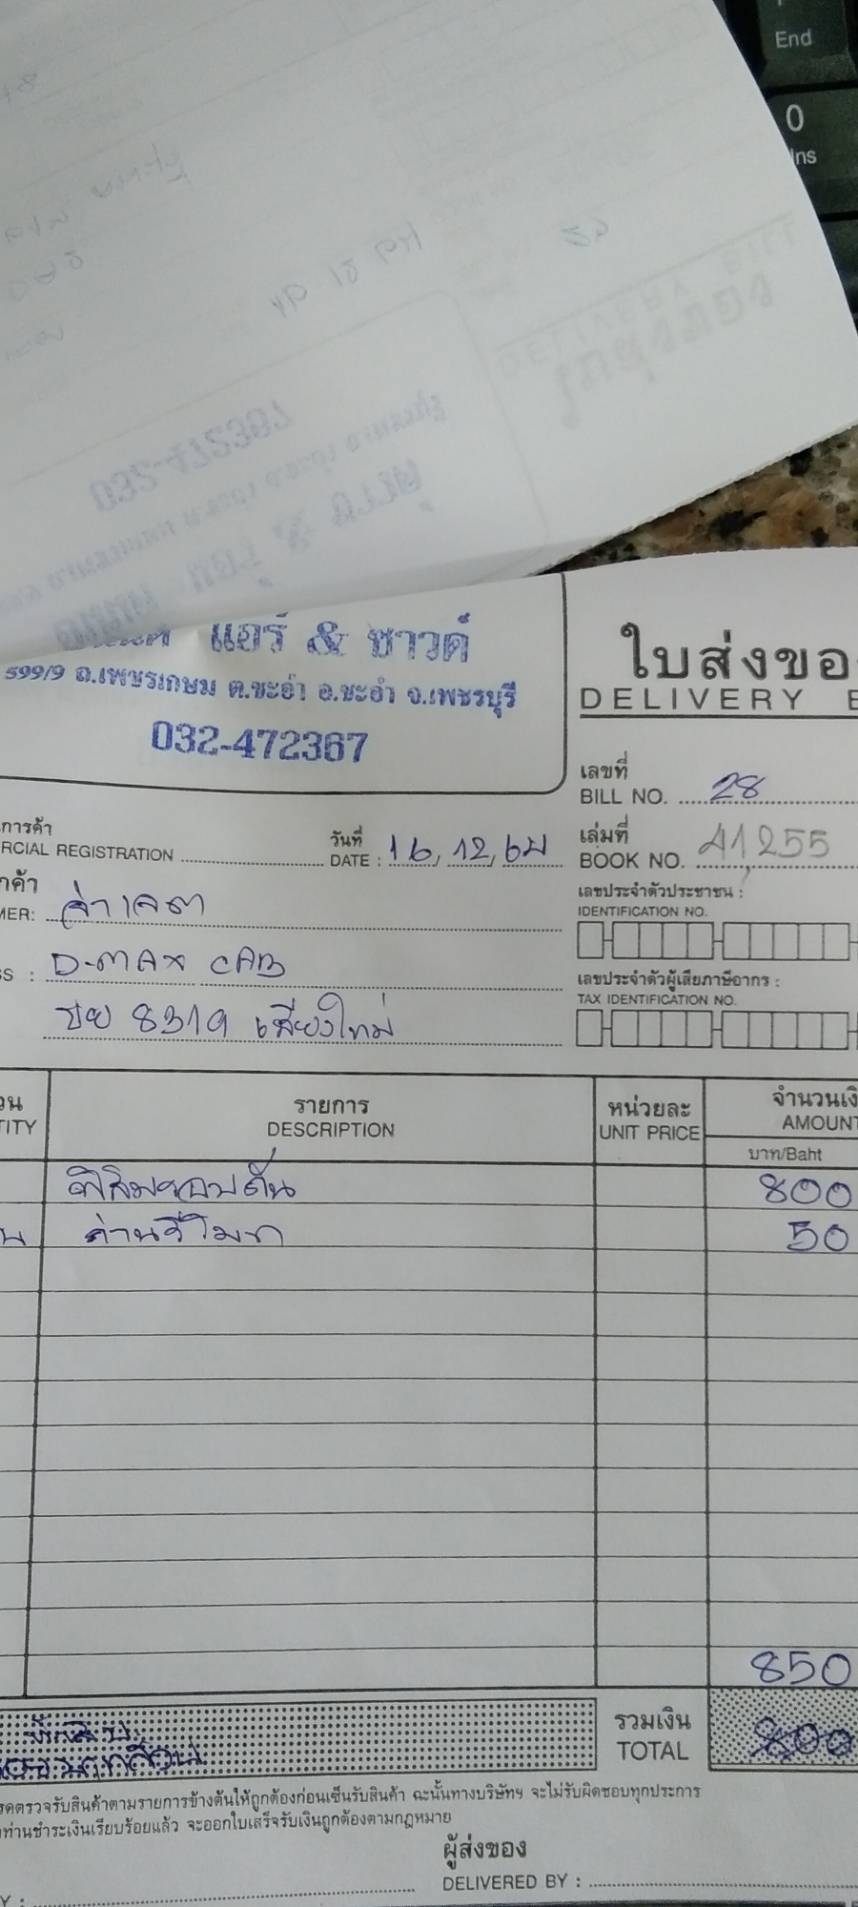 End
0
Ins
แอร์ & ซาวด์
599/9 ถ.เพชรเกษม ต.ชะอำ อ.ชะอำ จ.เพชรบุรี
032-472367
ใบส่งขอ
DELIVERY B
เลขที่
BILL NO. 28
การค้า
RCIAL REGISTRATION
วันที่
DATE : 16, 12, 64
เล่มที่
BOOK NO. 41255
กค้า
MER: จ่าเจต
เลขประจำตัวประชาชน :
IDENTIFICATION NO.
SS : D-MAX CAB
เลขประจำตัวผู้เสียภาษีอากร :
TAX IDENTIFICATION NO.
8319 เชียงใหม่
วน
TITY
รายการ
DESCRIPTION
หน่วยละ
UNIT PRICE
จำนวนเงิ
AMOUNT
บาท/Baht
ฟิล์มรอบคัน 800
ถ่านรีโมท 50
850
รวมเงิน
TOTAL
800
รดตรวจรับสินค้าตามรายการข้างต้นให้ถูกต้องก่อนเซ็นรับสินค้า ฉะนั้นทางบริษัทฯ จะไม่รับผิดชอบทุกประการ
ท่านชำระเงินเรียบร้อยแล้ว จะออกใบเสร็จรับเงินถูกต้องตามกฎหมาย
ผู้ส่งของ
DELIVERED BY :
Y :